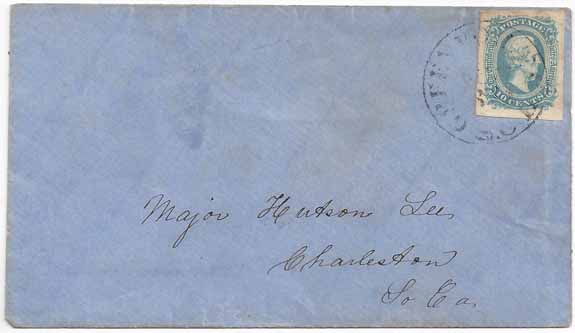 POSTAGE
10 CENTS
S.C.
Major Hutson Lee,
Charleston
So Ca.